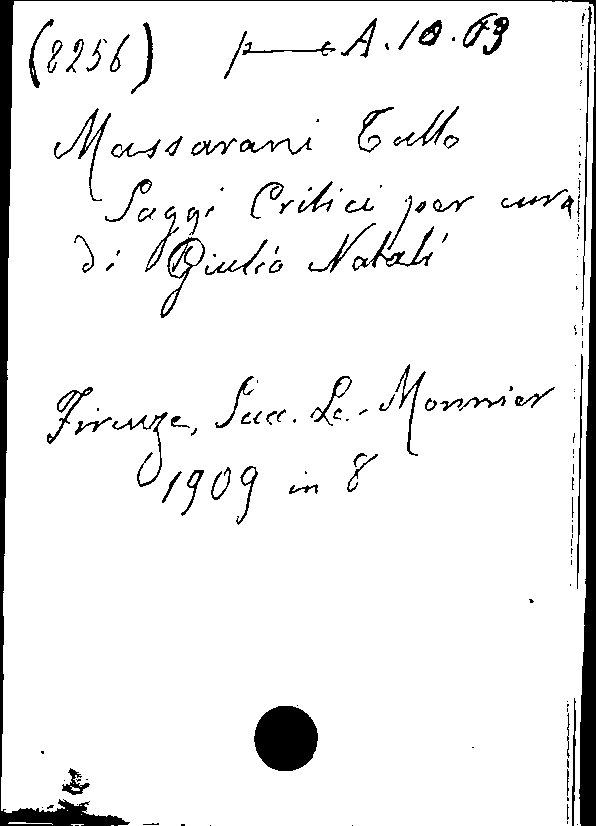 (8256) p——A.10.63
Massarani Tullo
Saggi Critici per cura
di Giulio Natali
Firenze, Succ. Le-Monnier
1909 in 8